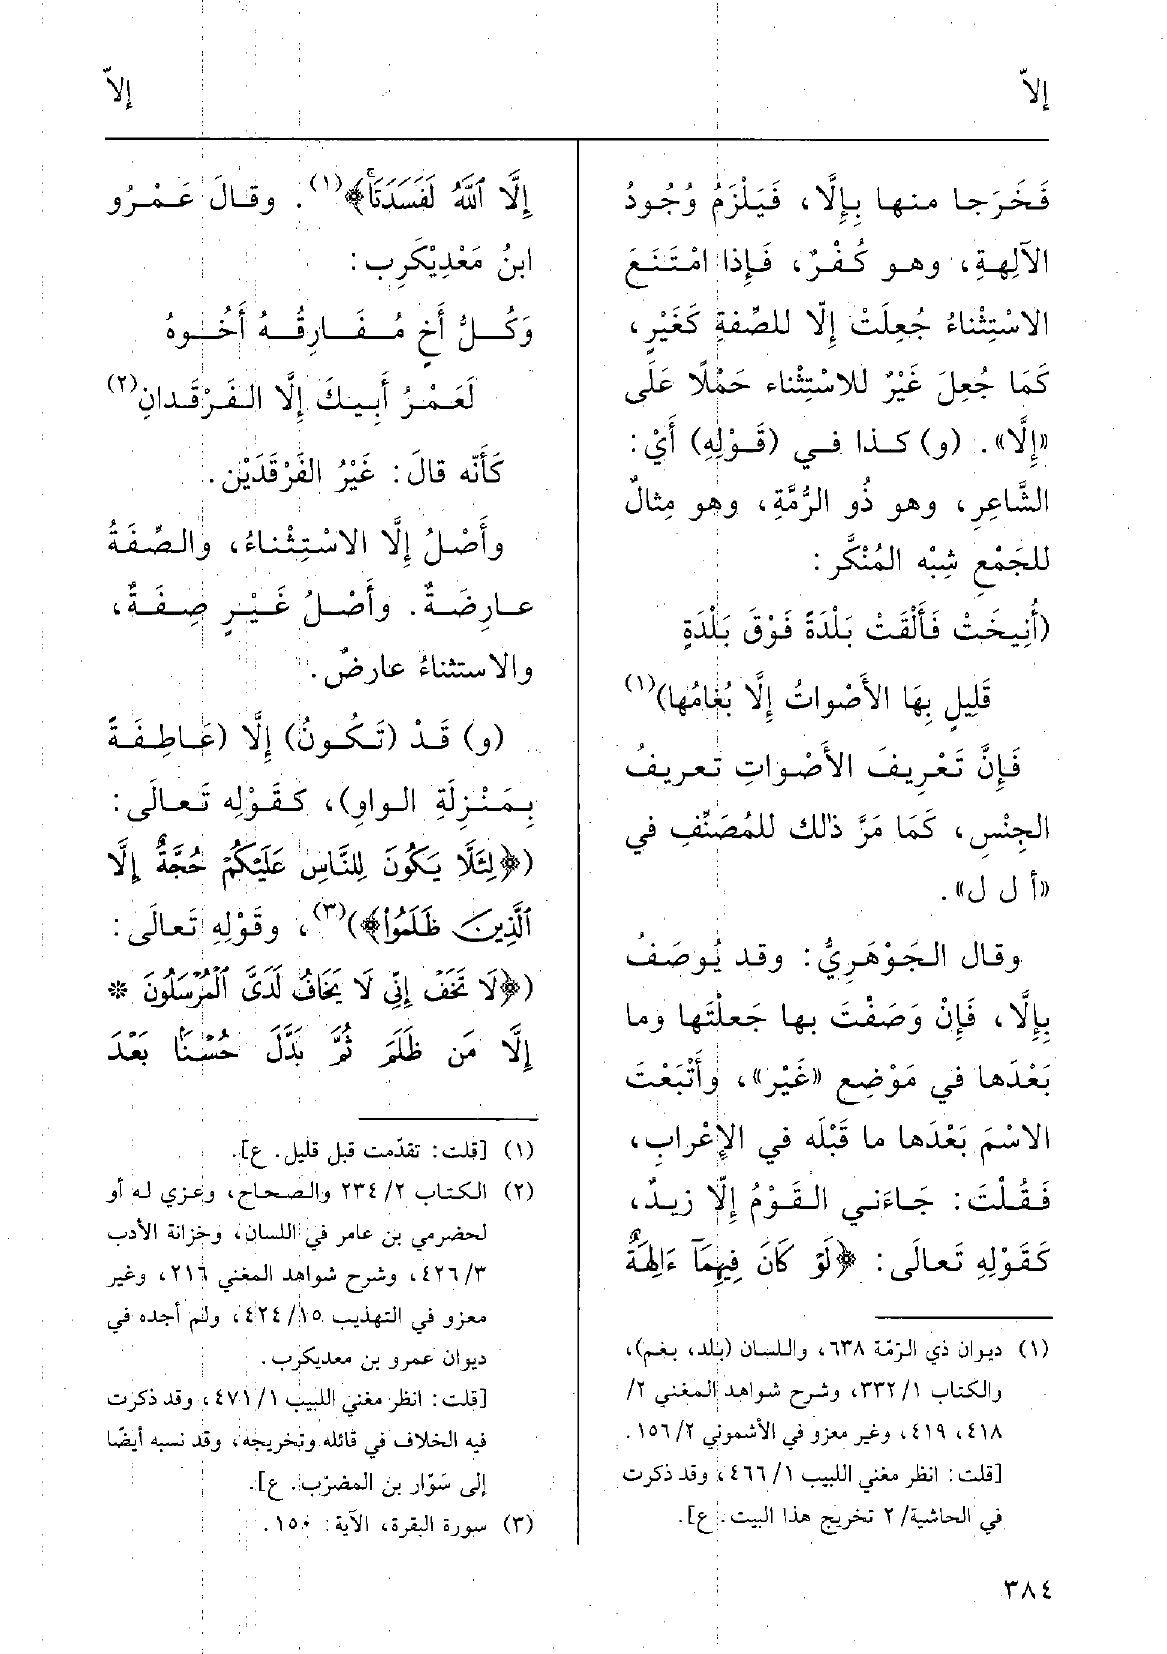 إلاّ
إلاّ
فَخَرَجا منها بِإِلَّا، فَيَلْزَمُ وُجُودُ
الآلِهةِ، وهو كُفْرٌ، فَإِذا امْتَنَعَ
الاسْتِثْناءُ جُعِلَتْ إِلّا للصِّفةِ كَغَيْرٍ،
كَمَا جُعِلَ غَيْرٌ للاسْتِثْناء حَمْلًا عَلَى
«إِلَّا». (و) كذا في (قَوْلِهِ) أَيْ:
الشَّاعِرِ، وهو ذُو الرُّمَّةِ، وهو مِثالٌ
للجَمْعِ شِبْه المُنْكَّر:
(أُنِيخَتْ فَأَلْقَتْ بَلْدَةً فَوْقَ بَلْدَةٍ
قَلِيلٍ بِهَا الأَصْواتُ إِلَّا بُغامُها)(١)
فَإِنَّ تَعْرِيفَ الأَصْواتِ تعريفُ
الجِنْسِ، كَمَا مَرَّ ذلك للمُصَنِّفِ في
«أ ل ل».
وقال الجَوْهَرِيُّ: وقد يُوصَفُ
بِإِلَّا، فَإِنْ وَصَفْتَ بها جَعلْتَها وما
بَعْدَها في مَوْضِعِ «غَيْر»، وأَتْبَعْتَ
الاسْمَ بَعْدَها ما قَبْلَه في الإِعْرابِ،
فَقُلْتَ: جَاءَني القَوْمُ إِلَّا زيدٌ،
كَقَوْلِهِ تَعالَى: ﴿لَوْ كَانَ فِيهِمَآ ءَالِهَةٌ
(١) ديوان ذي الرمّة ٦٣٨، واللسان (بلد، بغم)،
والكتاب ١/ ٣٣٢، وشرح شواهد المغني ٢/
٤١٨، ٤١٩، وغير معزو في الأشموني ٢/ ١٥٦.
[قلت: انظر مغني اللبيب ١/ ٤٦٦، وقد ذكرت
في الحاشية/ ٢ تخريج هذا البيت. ع].
إِلَّا ٱللَّهُ لَفَسَدَتَاۚ﴾(١). وقالَ عَمْرُو
ابنُ مَعْدِيْكَرِب:
وَكُلُّ أَخٍ مُفَارِقُهُ أَخُوهُ
لَعَمْرُ أَبِيكَ إِلَّا الفَرْقَدانِ(٢)
كَأَنّه قالَ: غَيْرُ الفَرْقَدَيْن.
وأَصْلُ إِلَّا الاسْتِثْناءُ، والصِّفَةُ
عارِضَةٌ. وأَصْلُ غَيْرٍ صِفَةٌ،
والاستثناءُ عارضٌ.
(و) قَدْ (تَكُونُ) إِلَّا (عَاطِفَةً
بِمَنْزِلَةِ الواو)، كقَوْلِه تَعالَى:
(﴿لِئَلَّا يَكُونَ لِلنَّاسِ عَلَيْكُمْ حُجَّةٌ إِلَّا
ٱلَّذِينَ ظَلَمُواْ﴾)(٣)، وقَوْلِهِ تَعالَى:
(﴿لَا تَخَفْ إِنِّي لَا يَخَافُ لَدَيَّ ٱلْمُرْسَلُونَ *
إِلَّا مَن ظَلَمَ ثُمَّ بَدَّلَ حُسْنًۢا بَعْدَ
(١) [قلت: تقدّمت قبل قليل. ع].
(٢) الكتاب ٢/ ٢٣٤ والصحاح، وعزي له أو
لحضرمي بن عامر في اللسان، وخزانة الأدب
٣/ ٤٢٦، وشرح شواهد المغني ٢١٦، وغير
معزو في التهذيب ١٥/ ٤٢٤، ولم أجده في
ديوان عمرو بن معديكرب.
[قلت: انظر مغني اللبيب ١/ ٤٧١، وقد ذكرت
فيه الخلاف في قائله وتخريجه، وقد نسبه أيضًا
إلى سَوّار بن المضرّب. ع].
(٣) سورة البقرة، الآية: ١٥٠.
٣٨٤